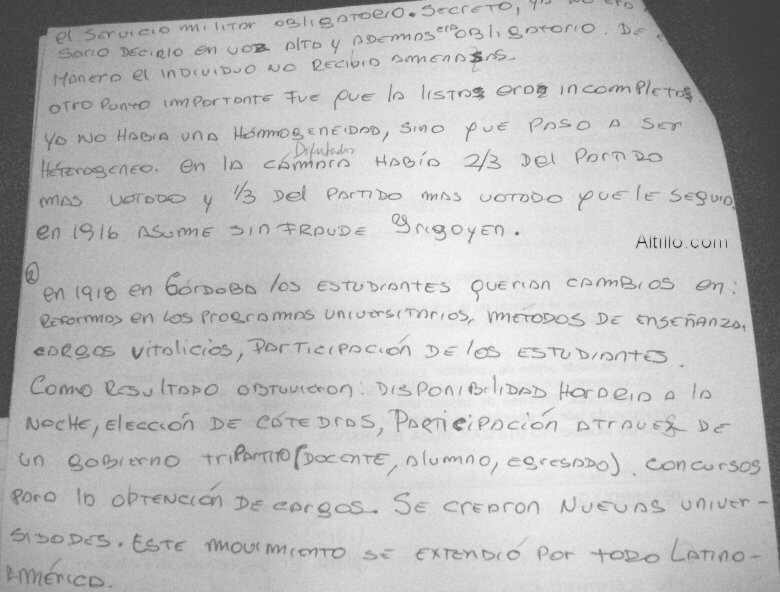 el servicio militar obligatorio. Secreto, ya no era
sario decirlo en voz alta y ademas era obligatorio. De
manera el individuo no recibia amenazas.
otro punto importante fue que la listas eras incompletas
ya no habia una hommogeneidad, sino que paso a ser
Héterogeneo. en la cámara Diputados había 2/3 del partido
mas votado y 1/3 del partido mas votado que le seguia
en 1916 asume sin fraude Yrigoyen.
Altillo.com
② en 1918 en Córdoba los estudiantes querian cambios en:
reformas en los programas universitarios, métodos de enseñanza,
cargos vitalicios, participación de los estudiantes.
Como resultado obtuvieron: disponibilidad horaria a la
noche, elección de cátedras, participación atravez de
un gobierno tripartito (docente, alumno, egresado). concursos
para la obtención de cargos. Se crearon nuevas univer-
sidades. Este movimiento se extendió por todo Latino-
américa.